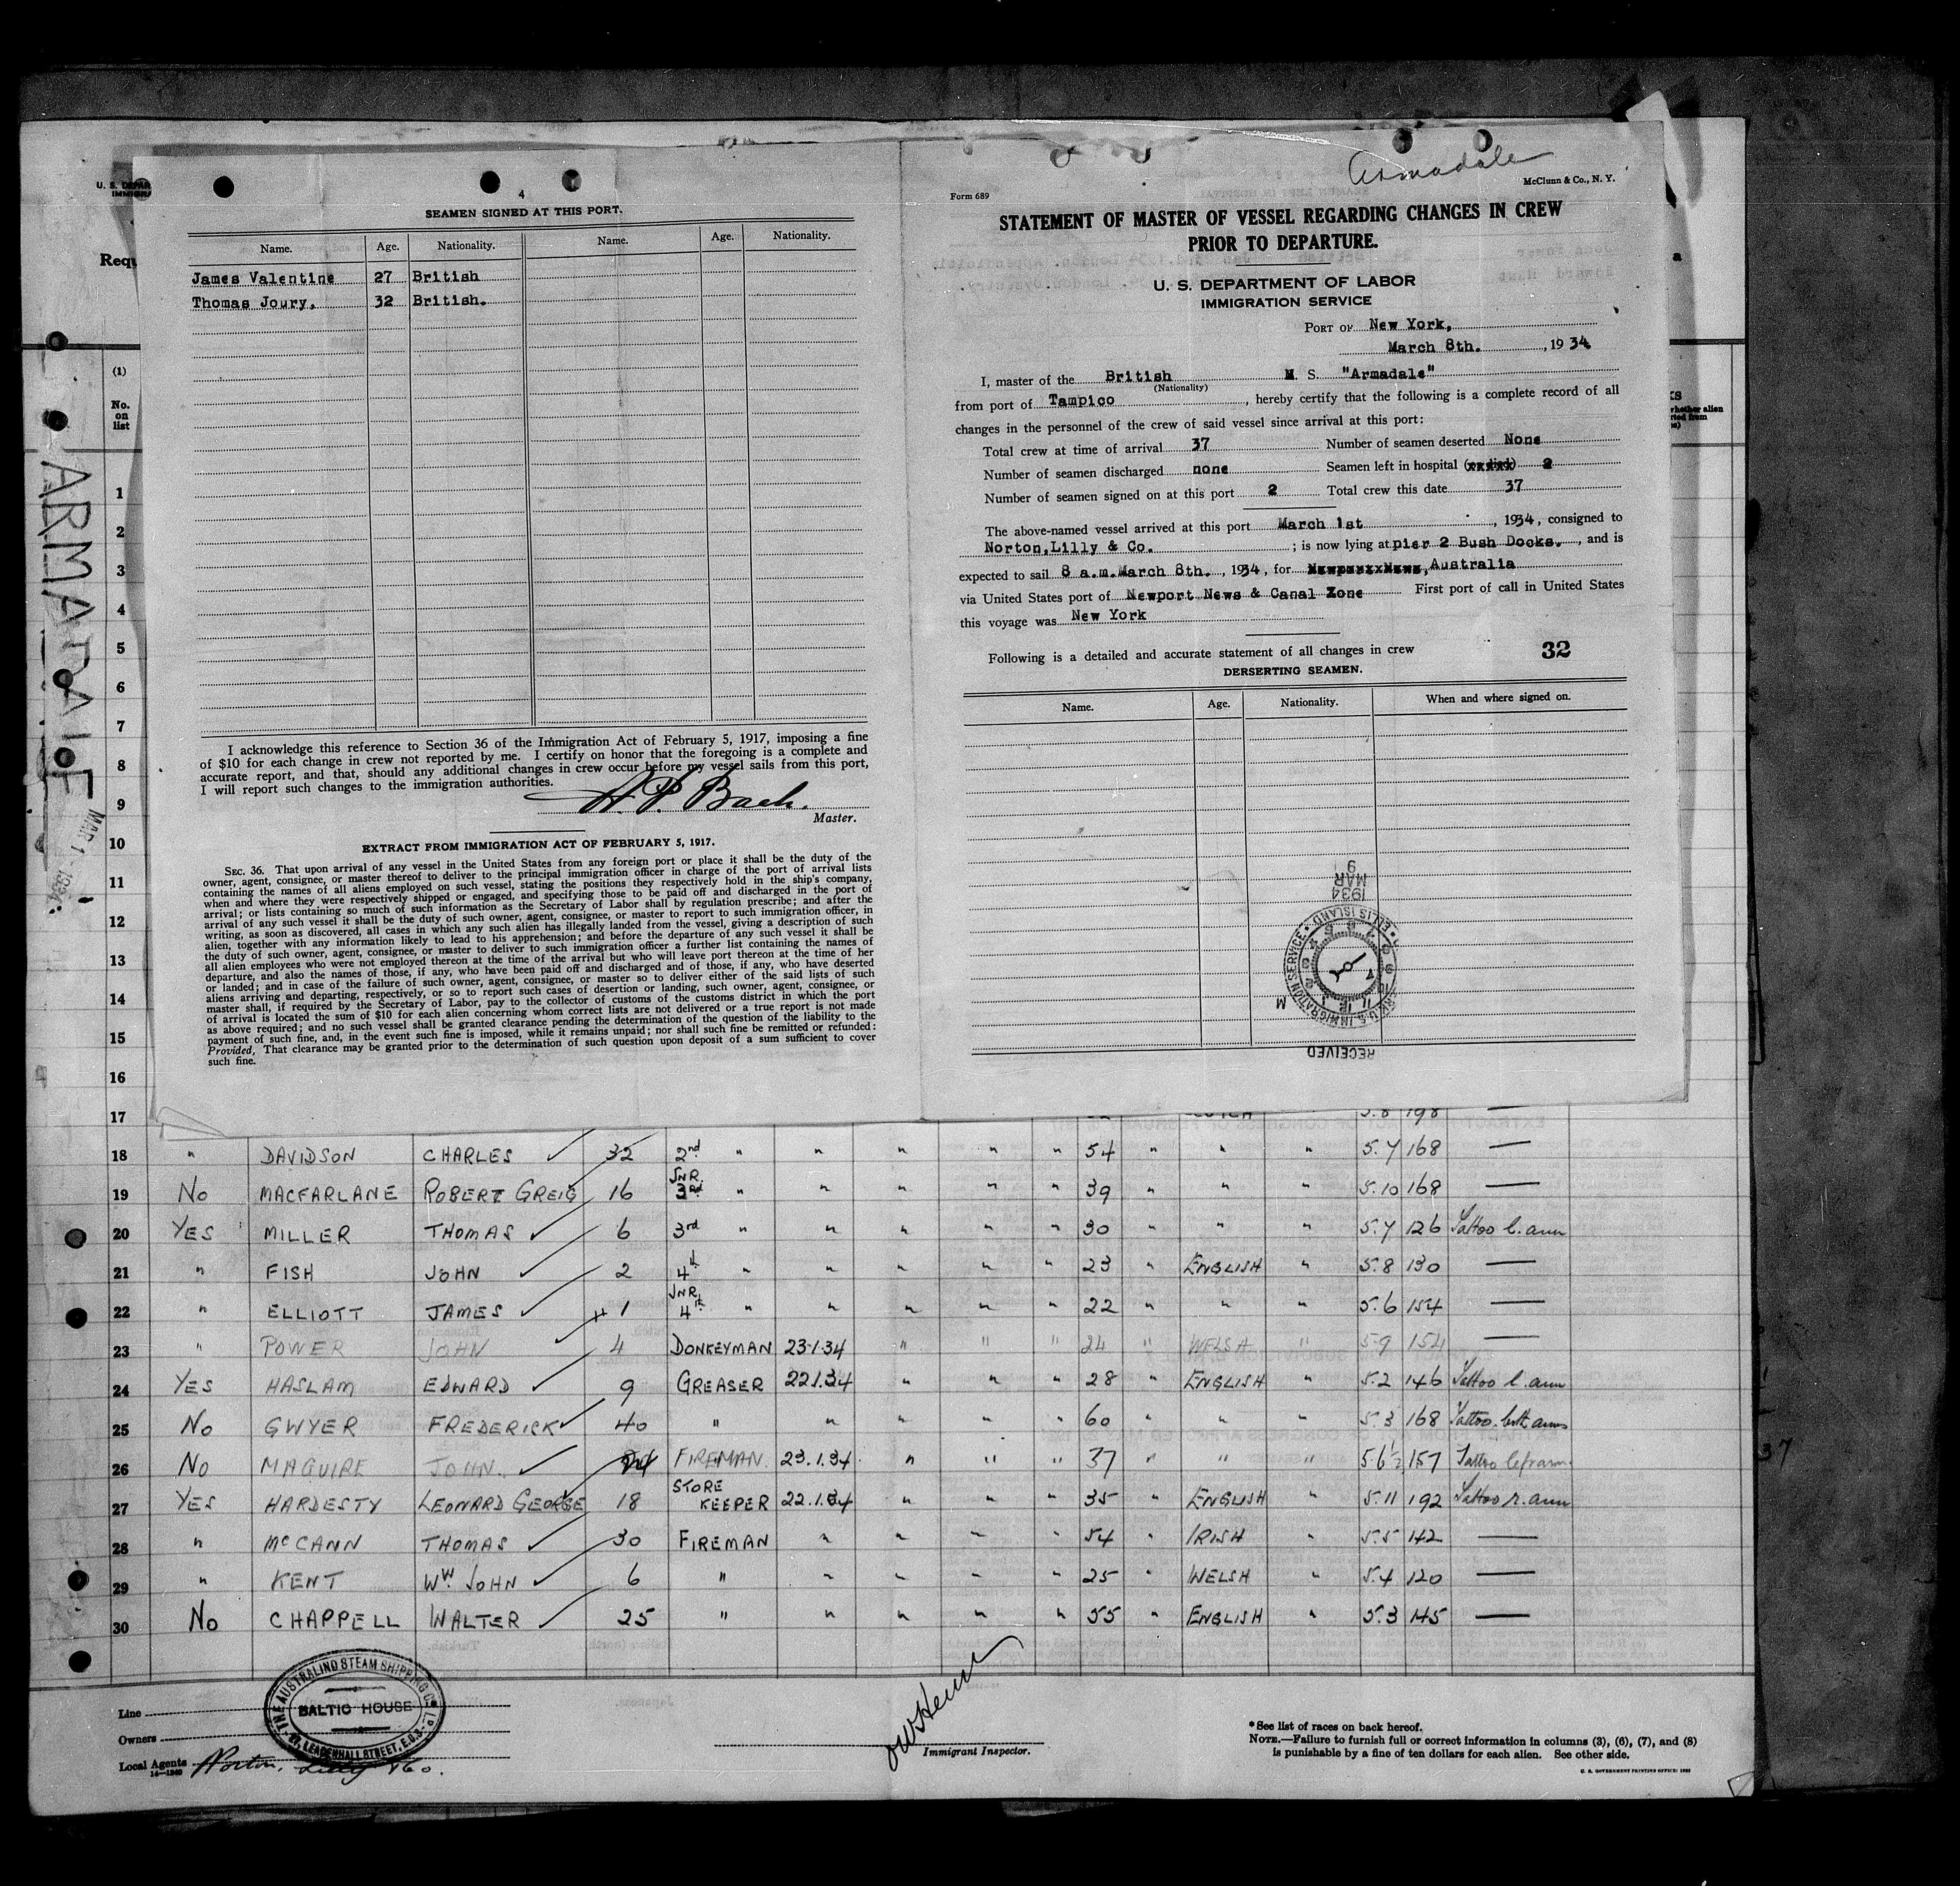 Armadale
U. S. DEPAR
IMMIGRA
Requ
(1)
No.
on
list
ARMADALE
MAR 1 - 1934
4
SEAMEN SIGNED AT THIS PORT.
Name. Age. Nationality. Name. Age. Nationality.
James Valentine 27 British
Thomas Joury, 32 British.
I acknowledge this reference to Section 36 of the Immigration Act of February 5, 1917, imposing a fine
of $10 for each change in crew not reported by me. I certify on honor that the foregoing is a complete and
accurate report, and that, should any additional changes in crew occur before my vessel sails from this port,
I will report such changes to the immigration authorities.
Master.
EXTRACT FROM IMMIGRATION ACT OF FEBRUARY 5, 1917.
SEC. 36. That upon arrival of any vessel in the United States from any foreign port or place it shall be the duty of the
owner, agent, consignee, or master thereof to deliver to the principal immigration officer in charge of the port of arrival lists
containing the names of all aliens employed on such vessel, stating the positions they respectively hold in the ship's company,
when and where they were respectively shipped or engaged, and specifying those to be paid off and discharged in the port of
arrival; or lists containing so much of such information as the Secretary of Labor shall by regulation prescribe; and after the
arrival of any such vessel it shall be the duty of such owner, agent, consignee, or master to report to such immigration officer, in
writing, as soon as discovered, all cases in which any such alien has illegally landed from the vessel, giving a description of such
alien, together with any information likely to lead to his apprehension; and before the departure of any such vessel it shall be
the duty of such owner, agent, consignee, or master to deliver to such immigration officer a further list containing the names of
all alien employees who were not employed thereon at the time of the arrival but who will leave port thereon at the time of her
departure, and also the names of those, if any, who have been paid off and discharged and of those, if any, who have deserted
or landed; and in case of the failure of such owner, agent, consignee, or master so to deliver either of the said lists of such
aliens arriving and departing, respectively, or so to report such cases of desertion or landing, such owner, agent, consignee, or
master shall, if required by the Secretary of Labor, pay to the collector of customs of the customs district in which the port
of arrival is located the sum of $10 for each alien concerning whom correct lists are not delivered or a true report is not made
as above required; and no such vessel shall be granted clearance pending the determination of the question of the liability to the
payment of such fine, and, in the event such fine is imposed, while it remains unpaid; nor shall such fine be remitted or refunded:
Provided, That clearance may be granted prior to the determination of such question upon deposit of a sum sufficient to cover
such fine.
Form 689
McClunn & Co., N. Y.
STATEMENT OF MASTER OF VESSEL REGARDING CHANGES IN CREW
PRIOR TO DEPARTURE.
U. S. DEPARTMENT OF LABOR
IMMIGRATION SERVICE
PORT OF New York,
March 8th. , 19 34
I, master of the British M. S. "Armadale"
(Nationality)
from port of Tampico , hereby certify that the following is a complete record of all
changes in the personnel of the crew of said vessel since arrival at this port:
Total crew at time of arrival 37 Number of seamen deserted None
Number of seamen discharged none Seamen left in hospital (or died) 2
Number of seamen signed on at this port 2 Total crew this date 37
The above-named vessel arrived at this port March 1st , 1934, consigned to
Norton,Lilly & Co. ; is now lying at pier 2 Bush Docks. , and is
expected to sail 8 a.m.March 8th. , 1934, for Australia
via United States port of Newport News & Canal Zone First port of call in United States
this voyage was New York
Following is a detailed and accurate statement of all changes in crew 32
DERSERTING SEAMEN.
Name. Age. Nationality. When and where signed on.
1934
MAR
9
U.S. IMMIGRATION SERVICE · ELLIS ISLAND
RECEIVED
1
2
3
4
5
6
7
8
9
10
11
12
13
14
15
16
17 5.8 198 —
18 " DAVIDSON CHARLES 32 2nd " " " " " 54 " " " 5.7 168 —
19 No MACFARLANE ROBERT GREIG 16 JNR. 3rd " " " " " 39 " " " 5.10 168 —
20 YES MILLER THOMAS 6 3rd " " " " " 30 " " " 5.7 126 Tattoo l. arm
21 " FISH JOHN 2 4th " " " " " 23 " ENGLISH " 5.8 130 —
22 " ELLIOTT JAMES 1 JNR. 4th " " " " " 22 " " " 5.6 154 —
23 " POWER JOHN 4 DONKEYMAN 23.1.34 " " " 24 " WELSH " 5.9 154 —
24 YES HASLAM EDWARD 9 GREASER 22.1.34 " " " 28 " ENGLISH " 5.2 146 Tattoo l. arm
25 No GWYER FREDERICK 40 " " " " " 60 " " " 5.3 168 Tattoo both arms
26 No MAGUIRE JOHN. FIREMAN. 23.1.34 " " " 37 " " " 5.6½ 157 Tattoo left arm.
27 YES HARDESTY LEONARD GEORGE 18 STORE KEEPER 22.1.34 " " " 35 " ENGLISH " 5.11 192 Tattoo r. arm
28 " McCANN THOMAS 30 FIREMAN " " " " 54 " IRISH " 5.5 142 —
29 " KENT Wm JOHN 6 " " " " " 25 " WELSH " 5.4 120 —
30 No CHAPPELL WALTER 25 " " " " " 55 " ENGLISH " 5.3 145 —
37
Line
Owners
Local Agents Norton, Lilly & Co.
14—1240
THE AUSTRALIND STEAM SHIPPING Co. LD.
BALTIC HOUSE
27, LEADENHALL STREET, E.C.3.
Immigrant Inspector.
*See list of races on back hereof.
NOTE.—Failure to furnish full or correct information in columns (3), (6), (7), and (8)
is punishable by a fine of ten dollars for each alien. See other side.
U. S. GOVERNMENT PRINTING OFFICE: